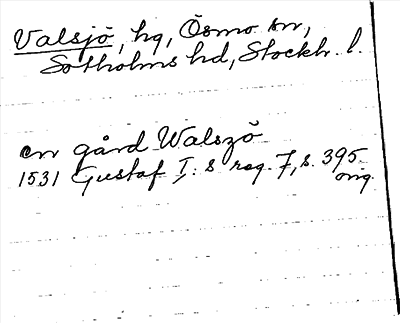 Valsjö, hg, Ösmo sn,
Sotholms hd, Stockh. l.
en gård Walszö
1531 Gustaf I:s reg. 7, s. 395
orig.